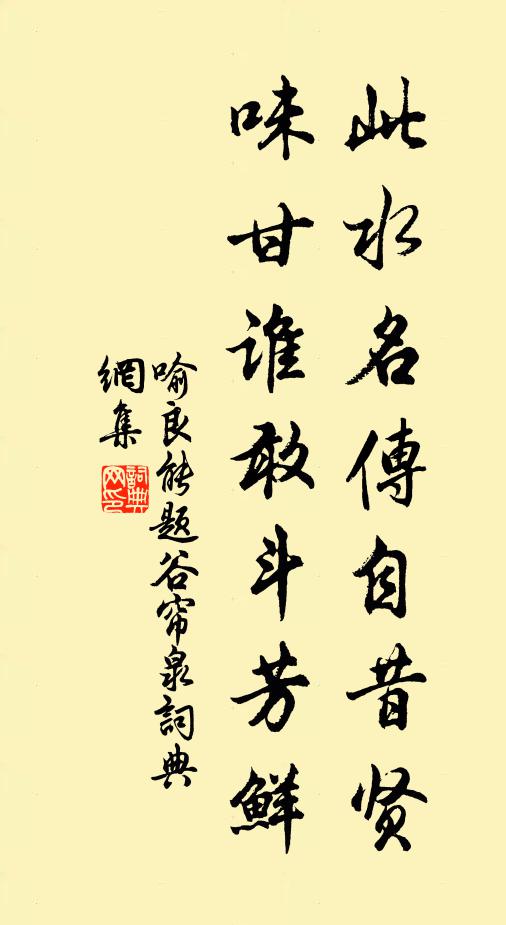 此水名傳自昔贤
味甘谁敢斗芳鮮
喻良能题谷帘泉詞典
網集
詞典网印